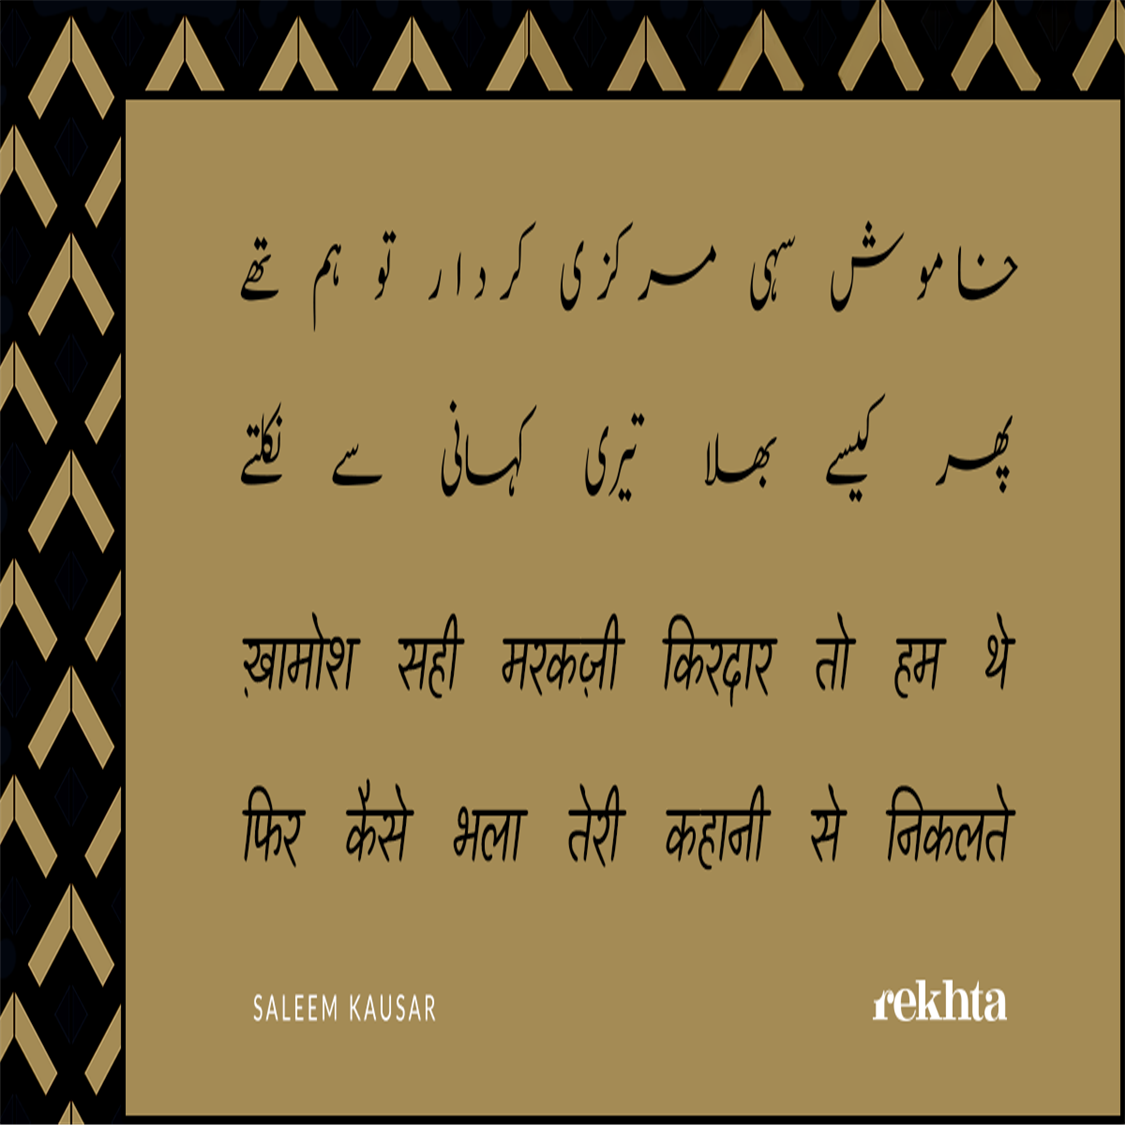 خاموش سہی مرکزی کردار تو ہم تھے
پھر کیسے بھلا تیری کہانی سے نکلتے
ख़ामोश सही मरकज़ी किरदार तो हम थे
फिर कैसे भला तेरी कहानी से निकलते
SALEEM KAUSAR
rekhta